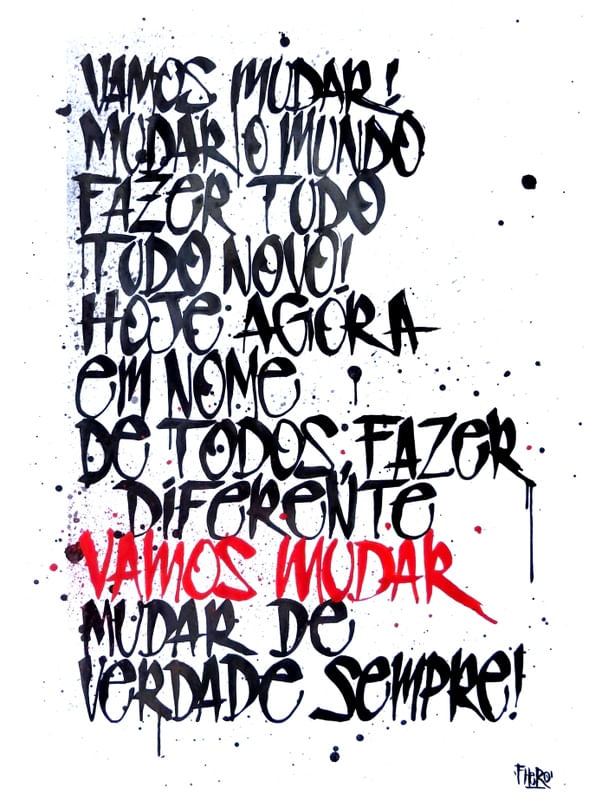 VAMOS MUDAR!
MUDAR O MUNDO
FAZER TUDO
TUDO NOVO!
HOJE AGORA
EM NOME
DE TODOS, FAZER
DIFERENTE
VAMOS MUDAR
MUDAR DE
VERDADE SEMPRE!
FHERO